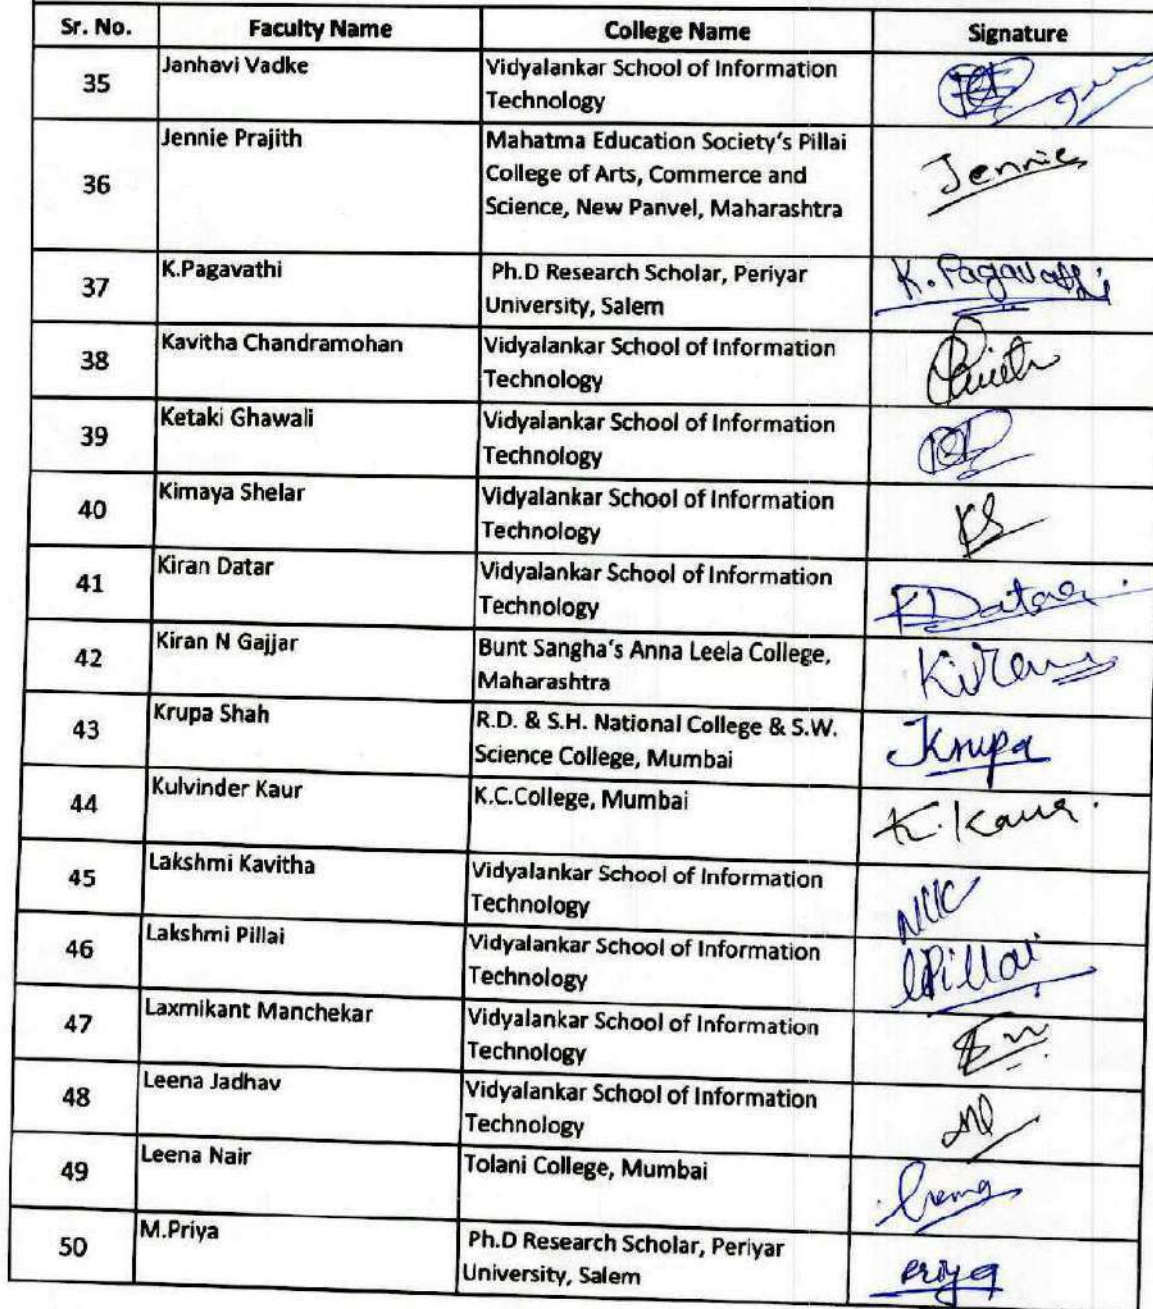 Sr. No. Faculty Name College Name Signature
35 Janhavi Vadke Vidyalankar School of Information
Technology
36 Jennie Prajith Mahatma Education Society's Pillai
College of Arts, Commerce and
Science, New Panvel, Maharashtra
Jennie
37 K.Pagavathi Ph.D Research Scholar, Periyar
University, Salem
K. Pagavathi
38 Kavitha Chandramohan Vidyalankar School of Information
Technology
39 Ketaki Ghawali Vidyalankar School of Information
Technology
40 Kimaya Shelar Vidyalankar School of Information
Technology
KS
41 Kiran Datar Vidyalankar School of Information
Technology
KDatar
42 Kiran N Gajjar Bunt Sangha's Anna Leela College,
Maharashtra
Kiran
43 Krupa Shah R.D. & S.H. National College & S.W.
Science College, Mumbai
Krupa
44 Kulvinder Kaur K.C.College, Mumbai
K. Kaur.
45 Lakshmi Kavitha Vidyalankar School of Information
Technology
46 Lakshmi Pillai Vidyalankar School of Information
Technology
LPillai
47 Laxmikant Manchekar Vidyalankar School of Information
Technology
48 Leena Jadhav Vidyalankar School of Information
Technology
49 Leena Nair Tolani College, Mumbai
50 M.Priya Ph.D Research Scholar, Periyar
University, Salem
Priya